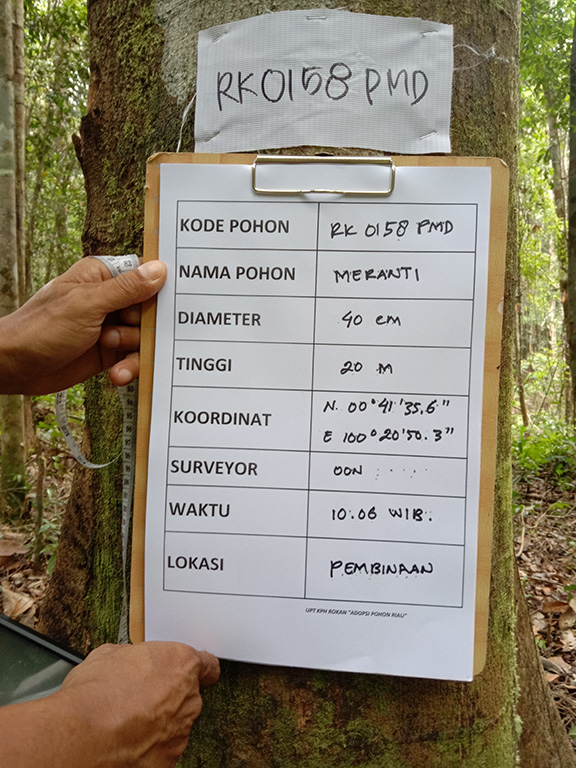 RK0158 PMD
KODE POHON RK 0158 PMD
NAMA POHON MERANTI
DIAMETER 40 cm
TINGGI 20 M
KOORDINAT N. 00°41'35.6"
E 100°20'50.3"
SURVEYOR OON
WAKTU 10.06 WIB.
LOKASI PEMBINAAN
UPT KPH ROKAN "ADOPSI POHON RIAU"